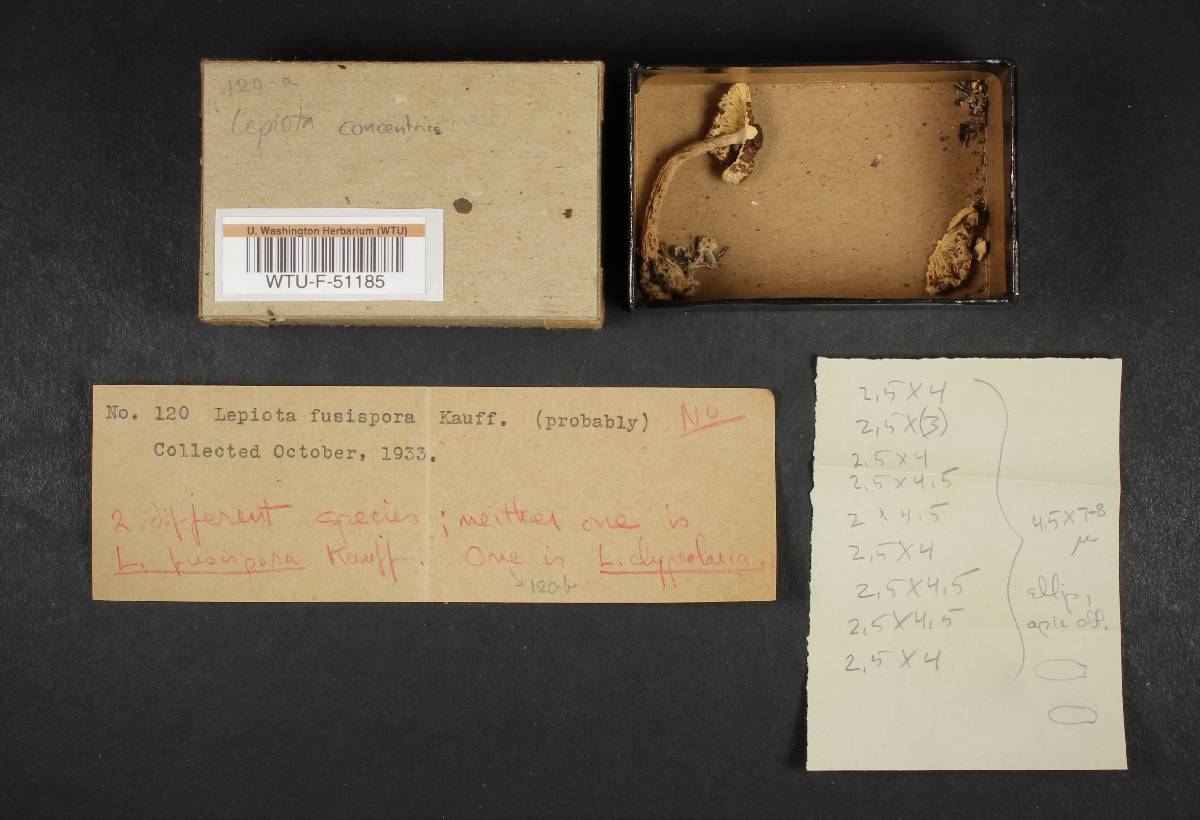 120-a
Lepiota concentris
U. Washington Herbarium (WTU)
WTU-F-51185
No. 120 Lepiota fusispora Kauff. (probably) No
Collected October, 1933.
2 different species; neither one is
L. fusispora Kauff. One is L. clypeolaria.
120-b
2,5 X 4
2,5 X (3)
2,5 X 4
2,5 X 4,5
2 X 4,5
2,5 X 4
2,5 X 4,5
2,5 X 4,5
2,5 X 4
4,5 X 7-8
μ
ellip,
apic obt.